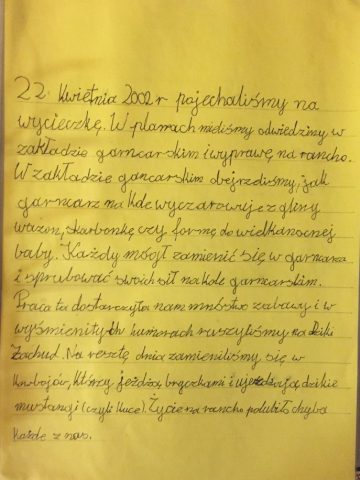 22. Kwietnia 2002 r pojechaliśmy na
wycieczkę. W planach mieliśmy odwiedzimy w
zakładzie garncarskim i wyprawę na rancho.
W zakładzie gancarskim dojrzeliśmy, jak
garncarz na kole wyczarowuje z gliny
wazon, skarbonkę czy formę do wielkanocnej
baby. Każdy mógł zamienić się w garncarza
i sprubować swoich sił na kole garncarskim.
Praca ta dostarczyła nam mnóstwo zabawy i w
wyśmienitych humorach ruszyliśmy na Dziki
Zachud. Na resztę dnia zamieniliśmy się w
kowbojów, którzy jeżdżą bryczkami i ujeżdżają dzikie
mustangi (czyli kuce). Życie na rancho polubiło chyba
każde z nas.